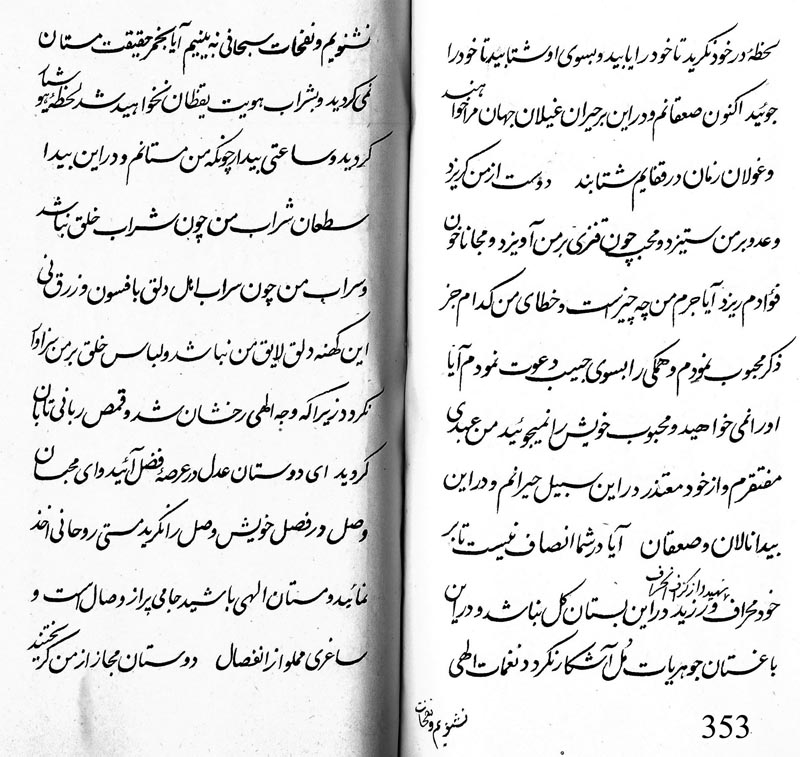 لحظهٔ در خود نگرید تا خود را یابید و بسوی او شتابید تا خود را
جوئید اکنون صعقانم و در این بر حیران غیلان جهان مرا خواهند
و غولان زمان در قفایم شتابند دوست از من گریزد
و عدو بر من ستیزد و محب چون قنزی بر من آویزد و مجانا خون
فؤادم ریزد آیا جرم من چه چیز است و خطای من کدام جز
ذکر محبوب نمودم و همگی را بسوی حبیب دعوت نمودم آیا
او را نمی خواهید و محبوب خویش را نمیجوئید من عهدی
مفتقرم و از خود معتذر در این سبیل حیرانم و در این
بیدا نالان و صعقان آیا در شما انصاف نیست تا بر
خود نمائید و از کژی انحراف
ورزید در این بستان کل نباشد و در این
باغستان جوهریات مل آشکار نگردد نغمات الهی
نشنویم و نفحات
353
نشنویم و نفحات سبحانی نه بینیم آیا بخمر حقیقت مستان
نمی گردید و بشراب هویت یقظان نخواهید شد لحظهٔ هوشیار
گردید و ساعتی بیدار چونکه من مستانم و در این بیدا
سطعان شراب من چون شراب خلق نباشد
و سراب من چون سراب اهل دلق بافسون و زرق نی
این کهنه دلق لایق من نباشد و لباس خلق بر من سزاوار
نگردد زیرا که وجه الهی رخشان شد و قمص ربانی تابان
گردید ای دوستان عدل در عرصهٔ فضل آئید و ای محبان
وصل در فصل خویش وصل را نگرید مستی روحانی اخذ
نمائید و مستان الهی باشید جامی پر از وصال است و
ساغری مملو از انفصال دوستان مجاز از من گریختند